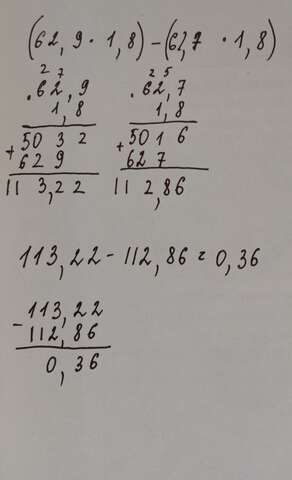 (62,9 · 1,8) - (62,7 · 1,8)
2 7
· 62,9
1,8
50 3 2
+ 62 9
11 3,22
2 5
· 62,7
1,8
50 1 6
+ 62 7
11 2,86
113,22 - 112,86 = 0,36
- 113,22
112,86
0,36